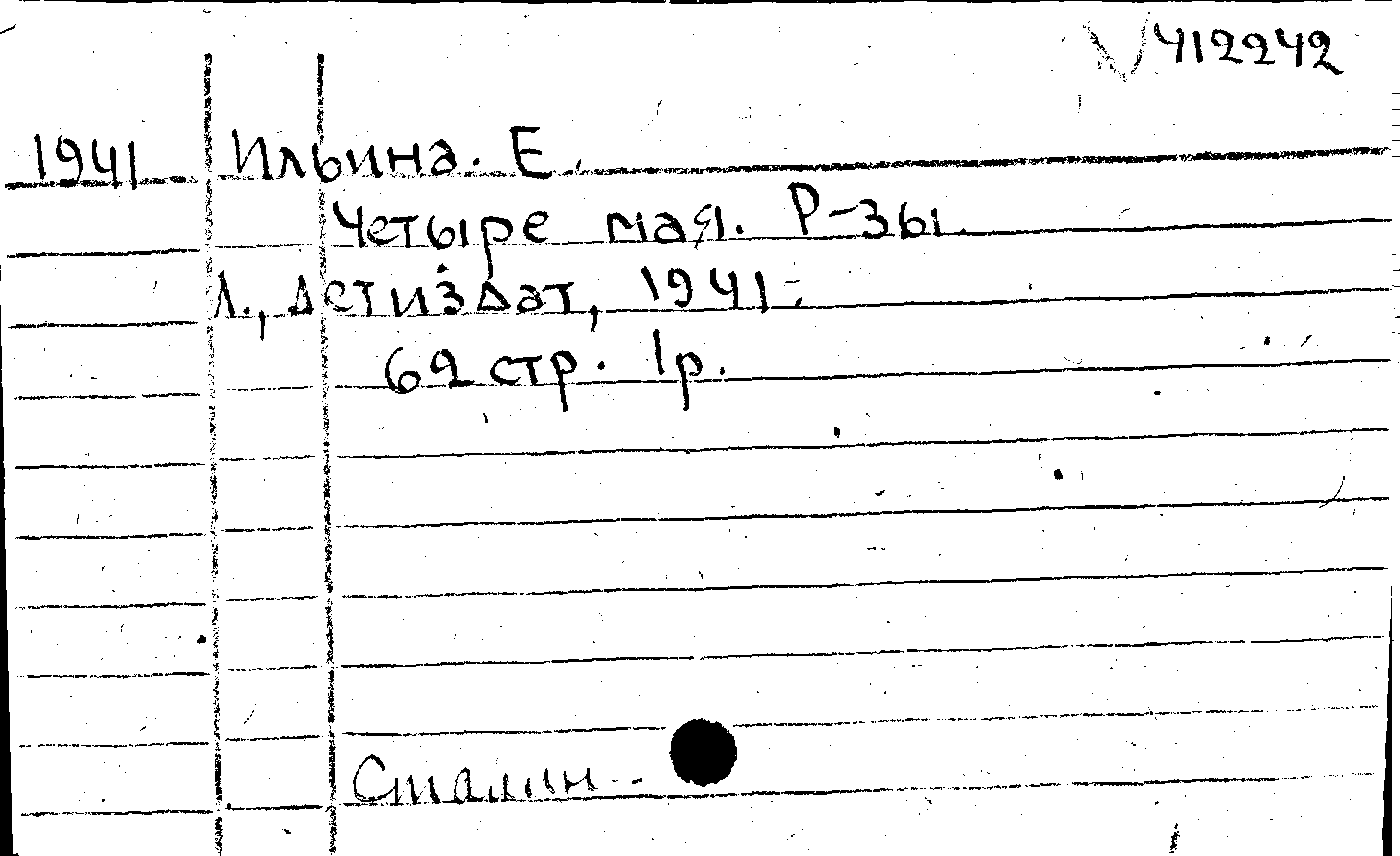 412242
1941 Ильина. Е.
Четыре мая. Р-зы.
Л., Детиздат, 1941.
62 стр. 1р.
Сталин.